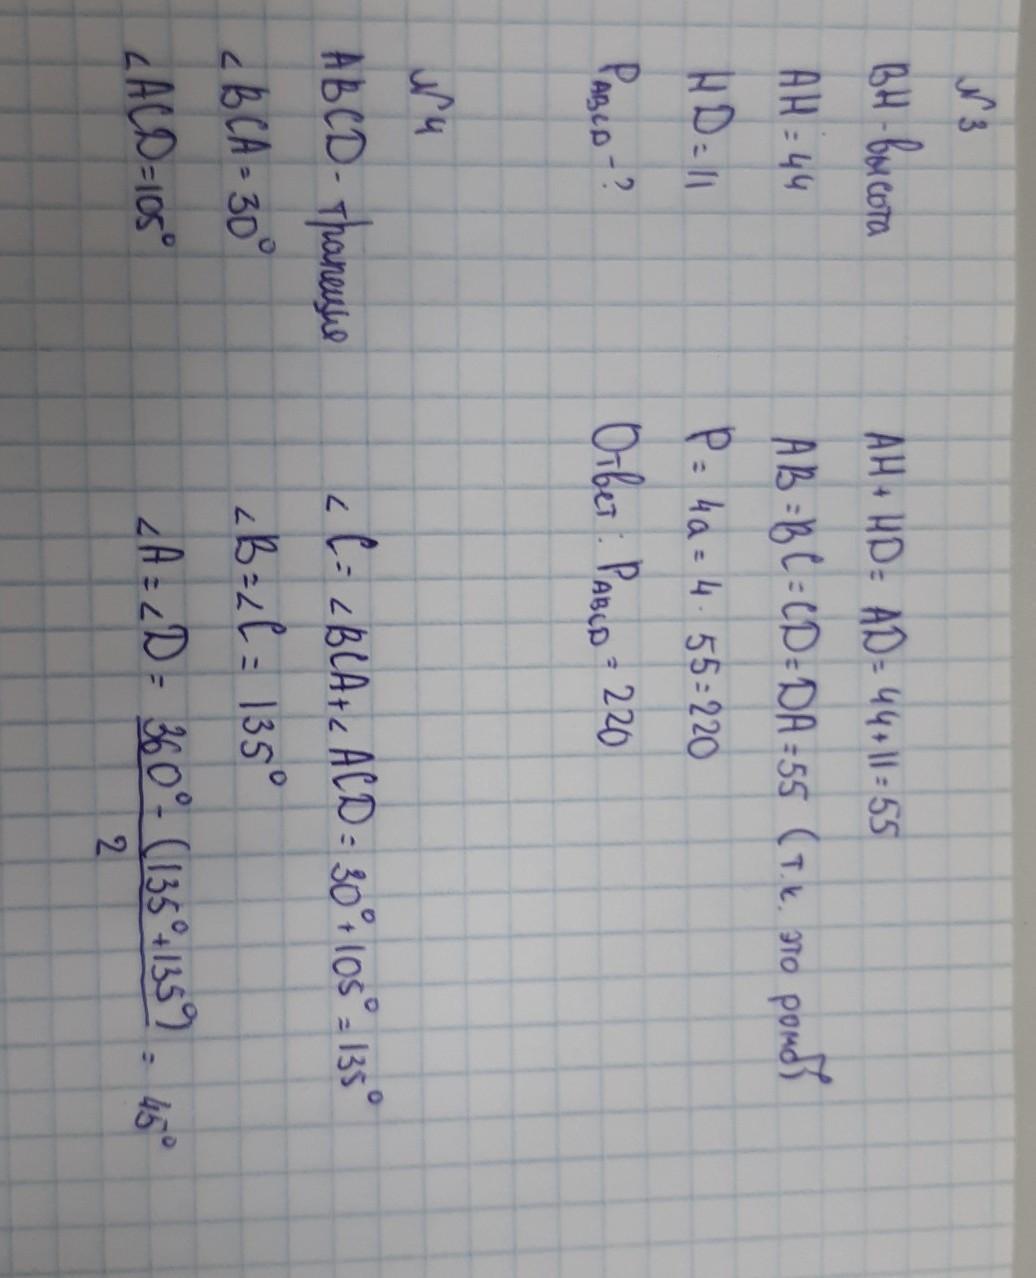 №3
BH - высота
AH = 44
HD = 11
P ABCD - ?
AH + HD = AD = 44 + 11 = 55
AB = BC = CD = DA = 55 (т.к. это ромб)
P = 4a = 4 · 55 = 220
Ответ: P ABCD = 220
№4
ABCD - трапеция
∠BCA = 30°
∠ACD = 105°
∠C = ∠BCA + ∠ACD = 30° + 105° = 135°
∠B = ∠C = 135°
∠A = ∠D = 360° - (135° + 135°) / 2 = 45°